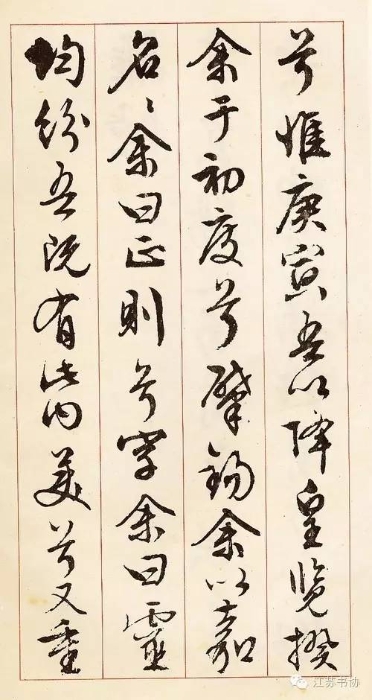 兮惟庚寅吾以降皇覽揆
余于初度兮肇錫余以嘉
名〻余曰正則兮字余曰靈
均紛吾既有此内美兮又重
江苏书协